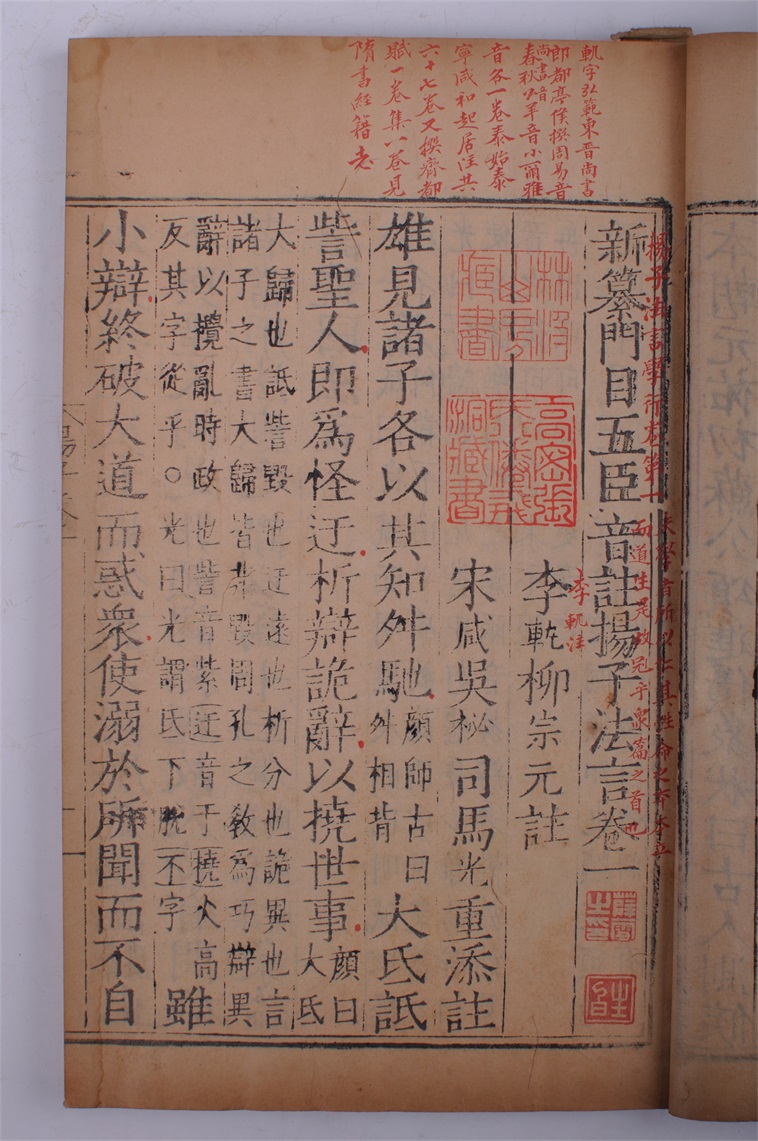 軌字弘範東晉尚書
郎都亭侯撰周易音
尚書音
春秋公羊音小爾雅
音各一卷泰始泰
寧咸和起居注共
六十七卷又撰齊都
賦一卷集八卷見
隋書經籍志
揚子法言學行卷第一
夫學者所以仁其性命之本本立
而道生是故冠乎衆篇之首也
新纂門目五臣音註揚子法言卷一
李軌柳宗元註
李軌注
宋咸吳祕司馬光重添註
高密張
氏
藏書
雄見諸子各以其知舛馳顏師古曰
舛相背大氐詆
訾聖人即爲怪迂析辯詭辭以撓世事顏曰
大氐
大歸也詆訾毀也迂遠也析分也詭異也言
諸子之書大歸皆非毀周孔之敎爲巧辯異
辭以攪亂時政也訾音紫迂音于撓火高
反其字從手○光曰光謂氐下脫一不字雖
小辯終破大道而惑衆使溺於所聞而不自